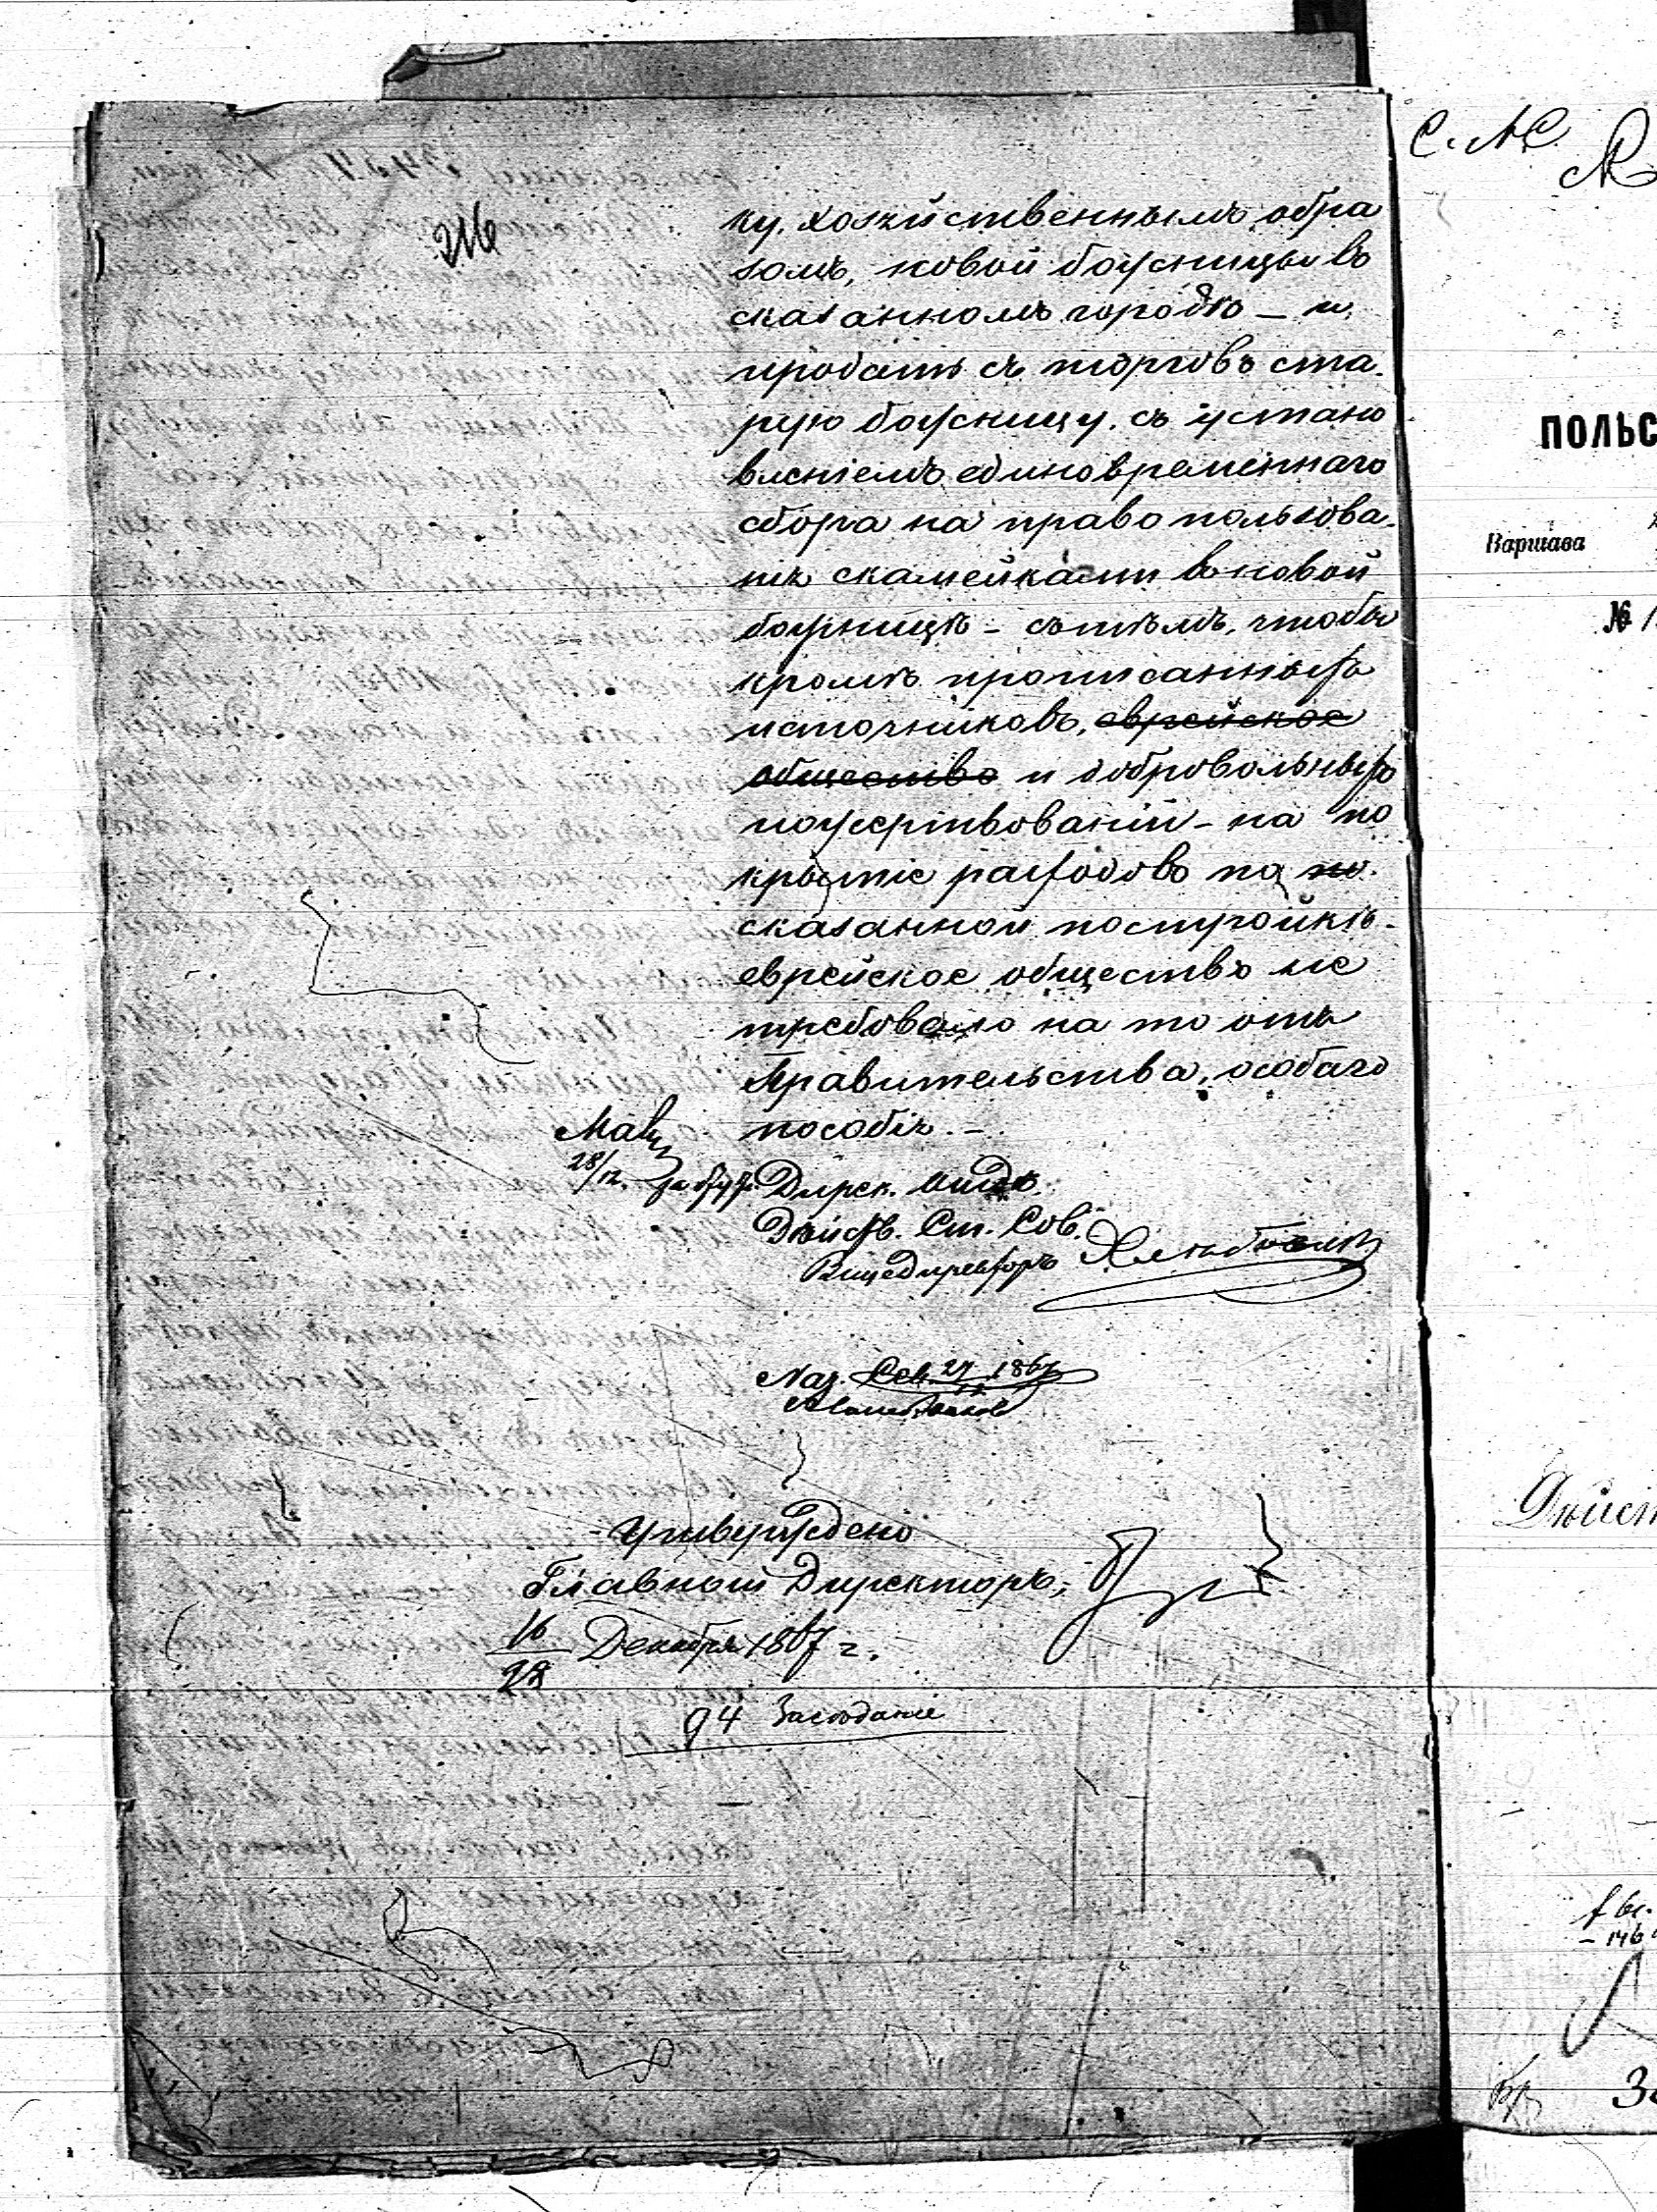 216
ку, хозяйственнымъ обра
зомъ, новой божницы въ
сказанномъ городѣ — и
продать съ торговъ ста-
рую божницу, съ устано
вленіемъ единовременнаго
сбора на право пользова-
нія скамейками въ новой
божницѣ — съ тѣмъ, чтобы
кромѣ прописанныхъ
источниковъ, еврейское
общество и добровольныхъ
пожертвованій — на по
крытіе расходовъ по по
сказанной постройкѣ —
еврейское общество не
требовало на то отъ
Правительства, особаго
пособія. —
28/12.
Дирек.
Дѣйств. Ст. Сов.
Вицедиректоръ
27 1867
Утверждено
Главный Директоръ,
16/28 Декабря 1867 г.
94 Засѣданіе
С. М.
ПОЛЬС
Варшава
№ 1
Дѣйст